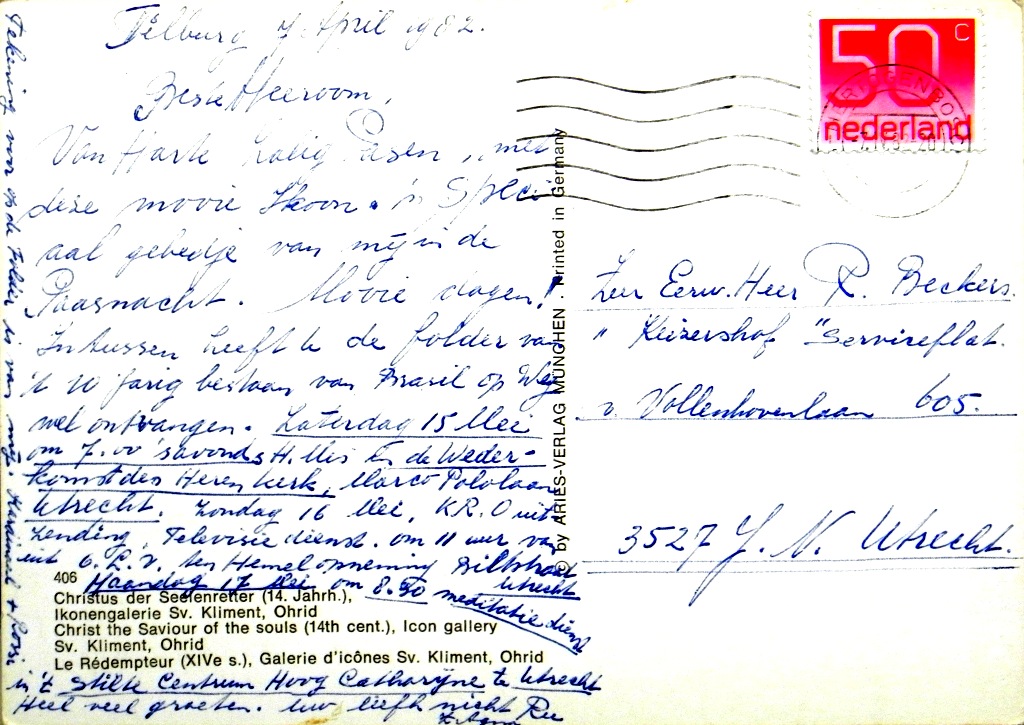 Tilburg 7 April 1982.
Beste Heeroom,
Van Harte Zalig Pasen, met
deze mooie Ikoon. 'n Speci
aal gebedje van mij in de
Paasnacht. Mooie dagen!
Intussen heeft U de folder van
't 10 jarig bestaan van Brasil op Weg
wel ontvangen. Zaterdag 15 Mei
om 7.00 's avonds H. Mis in de Weder-
komst des Heren Kerk, Marco Pololaan
Utrecht. Zondag 16 Mei, K.R.O uit
zending, Televisie dienst. om 11 uur van
uit O.L.V. ten Hemelopneming Biltstraat
Utrecht
Maandag 17 Mei om 8.50 meditatie dienst
in 't Stilte Centrum Hoog Catharijne te Utrecht
Heel veel groeten. Uw liefh. nicht
Tekening voor op de folder is van mij.
406
Christus der Seelenretter (14. Jahrh.),
Ikonengalerie Sv. Kliment, Ohrid
Christ the Saviour of the souls (14th cent.), Icon gallery
Sv. Kliment, Ohrid
Le Rédempteur (XIVe s.), Galerie d'icônes Sv. Kliment, Ohrid
© by ARIES-VERLAG MÜNCHEN . Printed in Germany
50 c
nederland
Zeer Eerw. Heer R. Beckers.
"Keizershof" Serviceflat.
v. Vollenhovenlaan 605.
3527 J. N. Utrecht.